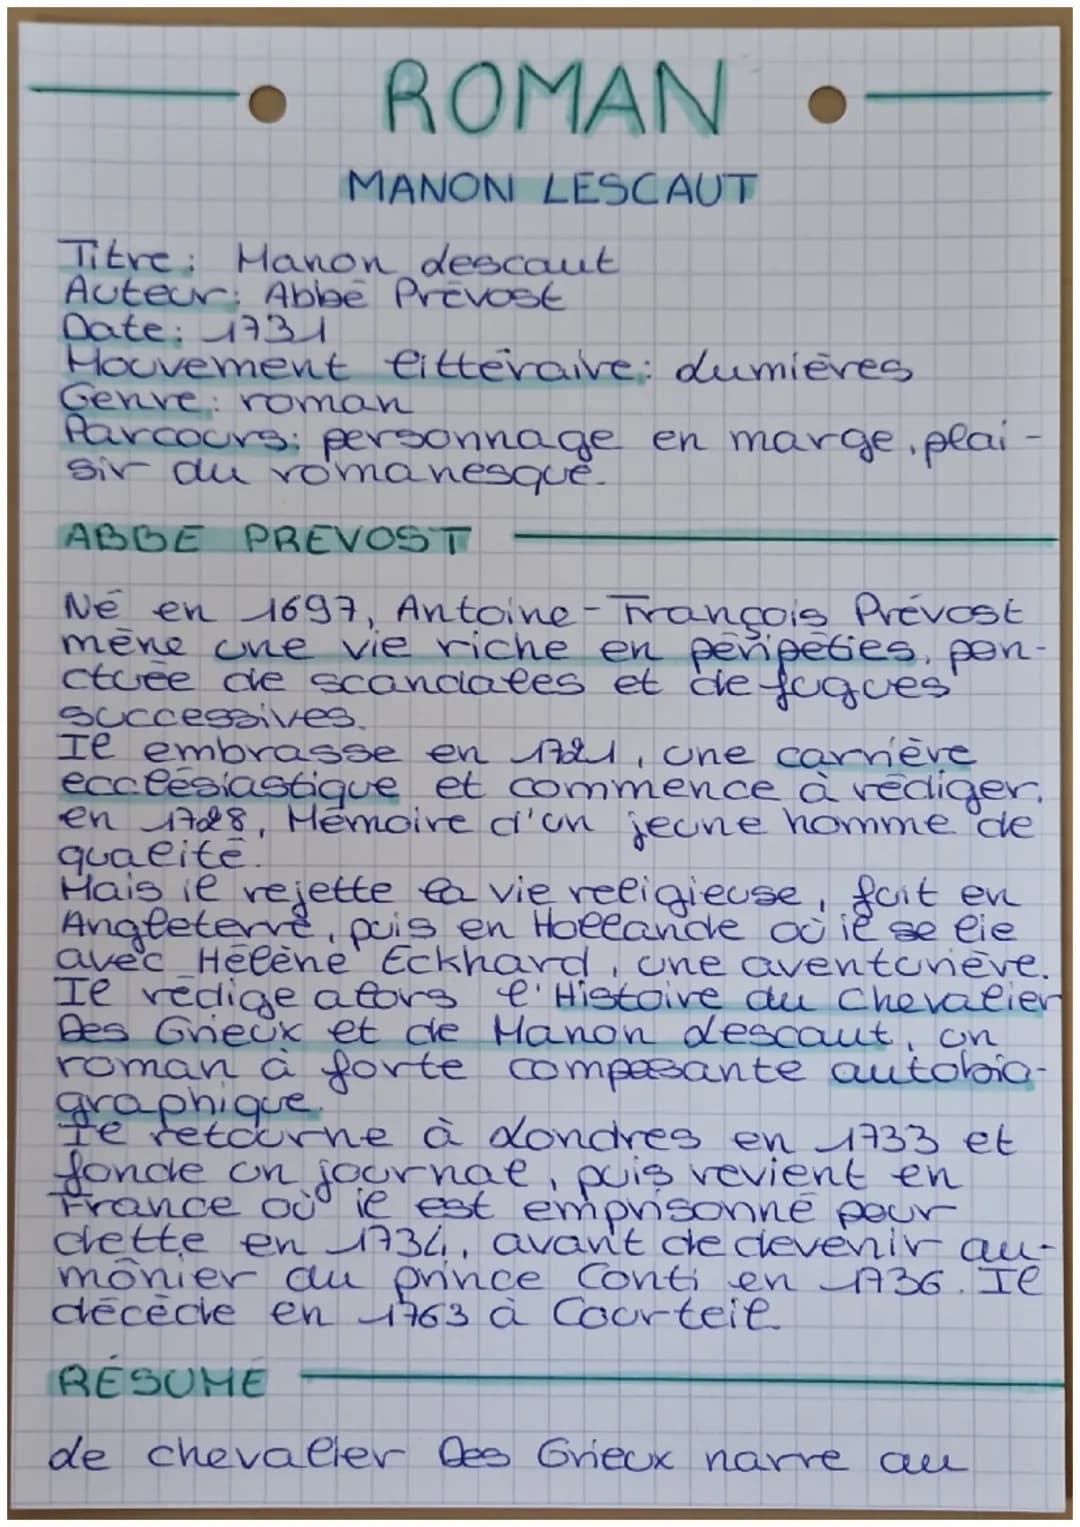 ROMAN
MANON LESCAUT
Titre : Manon Lescaut
Auteur : Abbé Prévost
Date : 1731
Mouvement littéraire : Lumières
Genre : roman
Parcours : personnage en marge, plai-
sir du romanesque.
ABBE PREVOST
Né en 1697, Antoine-François Prévost
mène une vie riche en péripéties, pon-
ctuée de scandales et de fugues
successives.
Il embrasse en 1721, une carrière
ecclésiastique et commence à rédiger,
en 1728, Mémoire d'un jeune homme de
qualité.
Mais il rejette la vie religieuse, fuit en
Angleterre, puis en Hollande où il se lie
avec Hélène Eckhard, une aventurière.
Il rédige alors l'Histoire du Chevalier
Des Grieux et de Manon Lescaut, un
roman à forte composante autobio-
graphique.
Il retourne à Londres en 1733 et
fonde un journal, puis revient en
France où il est emprisonné pour
dette en 1734, avant de devenir au-
mônier du prince Conti en 1736. Il
décède en 1763 à Courteil
RÉSUMÉ
Le chevalier Des Grieux narre au